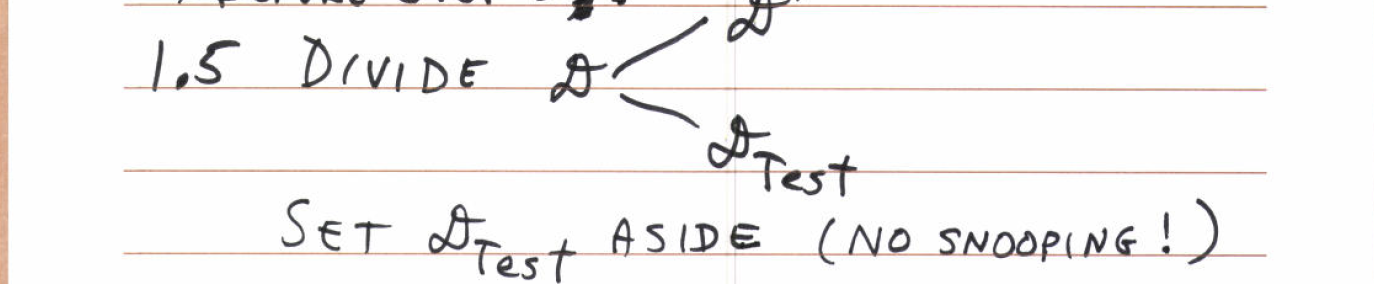 1.5 DIVIDE 𝒟 𝒟
𝒟Test
SET 𝒟Test ASIDE (NO SNOOPING!)